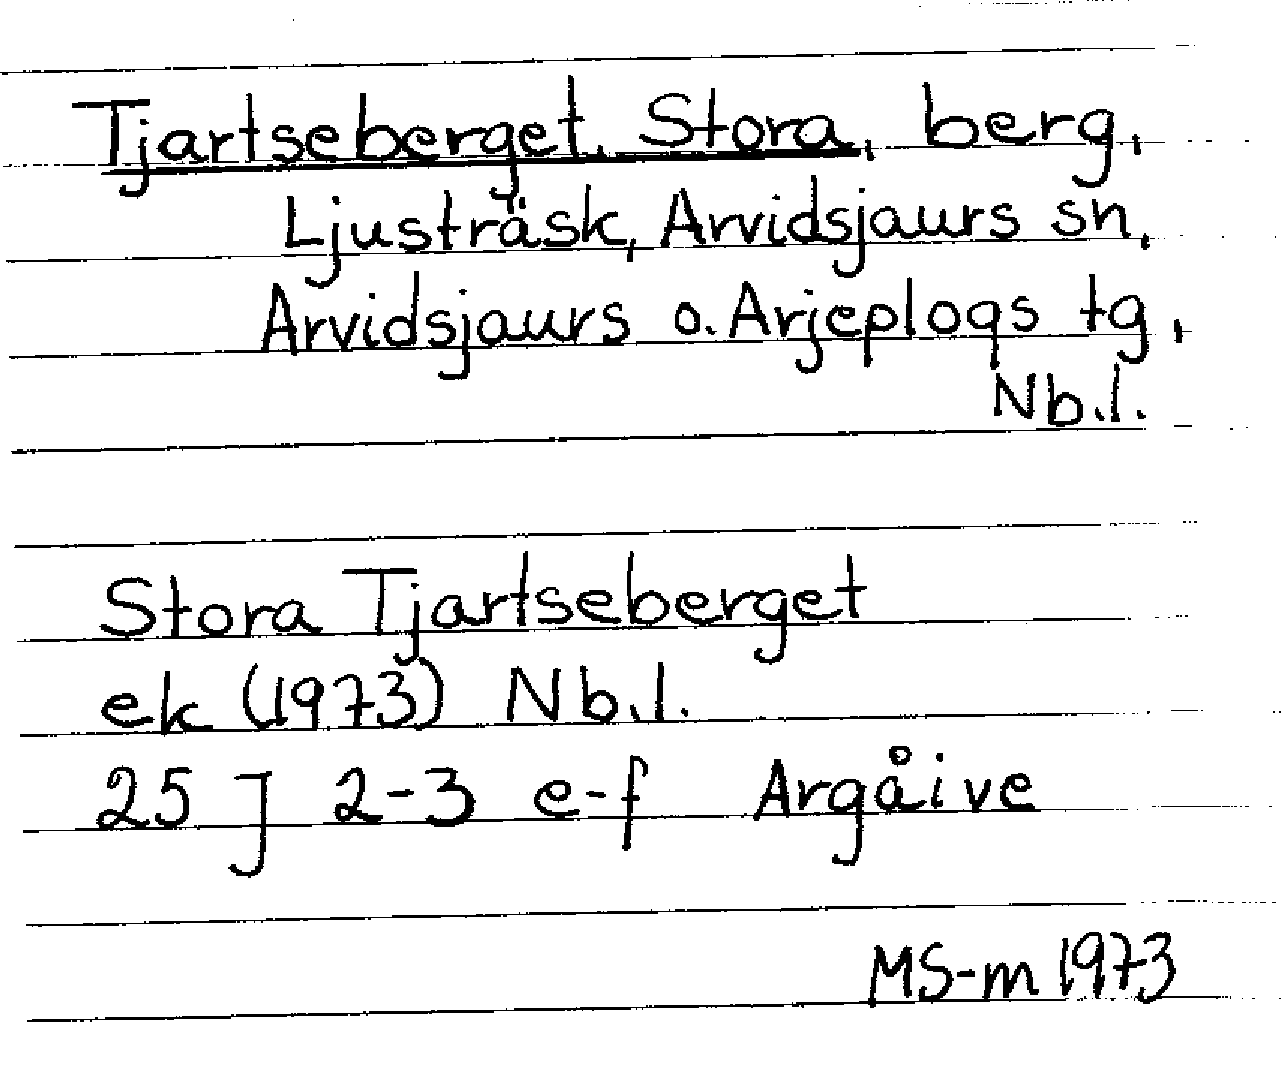 Tjartseberget, Stora, berg,
Ljusträsk, Arvidsjaurs sn,
Arvidsjaurs o. Arjeplogs tg,
Nb.l.
Stora Tjartseberget
ek (1973) Nb.l.
25 J 2-3 e-f Argåive
MS-m 1973